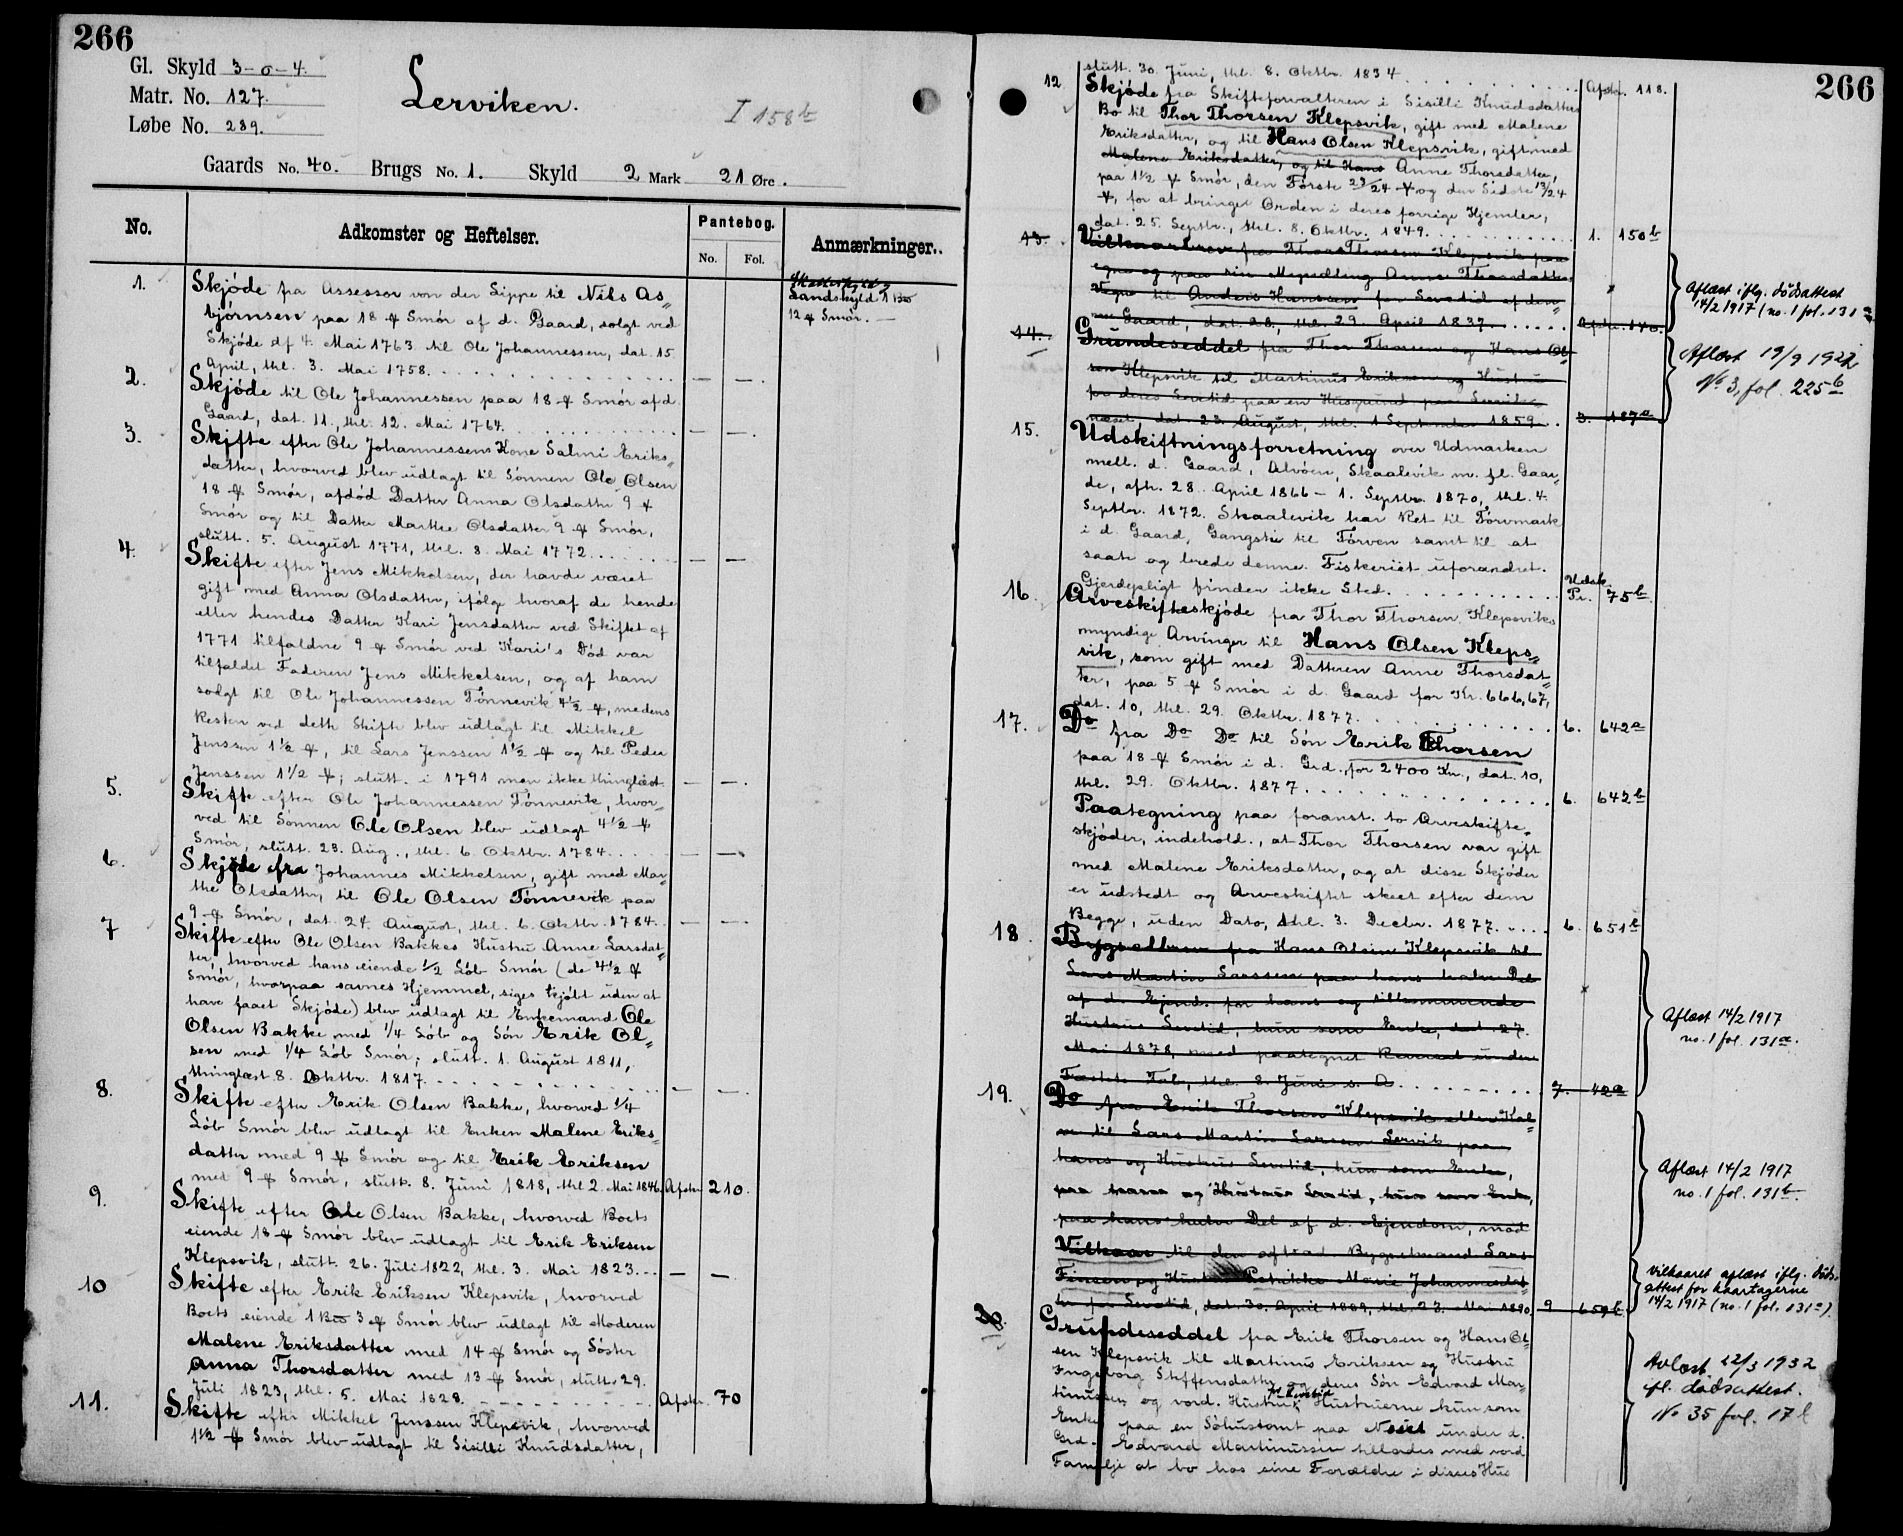 266
Gl. Skyld 3-0-4.
Matr. No. 127.
Løbe No. 289.
Lerviken.
I 158b
Gaards No. 40. Brugs No. 1. Skyld 2 Mark 21 Øre.
No. Adkomster og Heftelser. Pantebog. No. Fol. Anmærkninger.
Landskyld 1
12 # Smør. —
1. Skjøde fra Assessor von der Lippe til Nils As-
bjørnsen paa 18 # Smør af d. Gaard, solgt ved
Skjøde af 4. Mai 1763 til Ole Johannessen, dat. 15
April, thl. 3. Mai 1758. — —
2. Skjøde til Ole Johannessen paa 18 # Smør af d.
Gaard, dat. 11., thl. 12. Mai 1764. — —
3. Skifte efter Ole Johannessens Kone Salmi Eriks-
datter, hvorved blev udlagt til Sønnen Ole Olsen
18 # Smør, afdød Datter Anna Olsdatter 9 #
Smør og til Datter Marthe Olsdatter 9 # Smør,
slutt. 5. August 1771, thl. 8. Mai 1772. — —
4. Skifte efter Jens Mikkelsen, der havde været
gift med Anna Olsdatter, ifølge hvoraf de hende
eller hendes Datter Kari Jensdatter ved Skiftet af
1771 tilfaldne 9 # Smør ved Kari's Død var
tilfaldet Faderen Jens Mikkelsen, og af ham
solgt til Ole Johannessen Tønnevik 4½ #, medens
Resten ved dette Skifte blev udlagt til Mikkel
Jenssen 1½ #, til Lars Jenssen 1½ # og til Peder
Jenssen 1½ #; slutt. i 1791 men ikke thinglæst. — —
5. Skifte efter Ole Johannessen Tønnevik, hvor-
ved til Sønnen Ole Olsen blev udlagt 4½ #
Smør, slutt. 23. Aug., thl. 6. Oktbr. 1784. — —
6. Skjøde fra Johannes Mikkelsen, gift med Mar-
the Olsdatter, til Ole Olsen Tønnevik paa
9 # Smør, dat. 24. August, thl. 6. Oktbr. 1784. — —
7 Skifte efter Ole Olsen Bakkes Hustru Anne Larsdat-
ter, hvorved hans eiende ½ Løb Smør (de 4½ #
Smør, hvorpaa savnes Hjemmel, siges kjøbt uden at
have faaet Skjøde) blev udlagt til Enkemand Ole
Olsen Bakke med ¼ Løb og Søn Erik Ol-
sen med ¼ Løb Smør; slutt. 1. August 1811,
thinglæst 8. Oktbr. 1817. — —
8. Skifte efter Erik Olsen Bakke, hvorved ¼
Løb Smør blev udlagt til Enken Malene Eriks-
datter med 9 # Smør og til Erik Eriksen
med 9 # Smør, slutt. 8. Juni 1818, thl 2. Mai 1846. Afskr. 210.
9. Skifte efter Ole Olsen Bakke, hvorved Boets
eiende 18 # Smør blev udlagt til Erik Eriksen
Klepsvik, slutt. 26. Juli 1822, thl. 3. Mai 1823. — —
10 Skifte efter Erik Eriksen Klepsvik, hvorved
Boets eiende 1 3 # Smør blev udlagt til Moderen
Malene Eriksdatter med 14 # Smør og Søster
Anna Thorsdatter med 13 # Smør, slutt. 29.
Juli 1823, thl. 5. Mai 1828. Afskr. 70
11. Skifte efter Mikkel Jenssen Klepsvik, hvorved
1½ # Smør blev udlagt til Sisilli Knudsdatter,
266
slutt. 30. Juni, thl. 8. Oktbr. 1834. Afskr. 118.
12 Skjøde fra Skifteforvalteren i Sisilli Knudsdatters
Bo til Thor Thorsen Klepsvik, gift med Malene
Eriksdatter, og til Hans Olsen Klepsvik, gift med
Malene Eriksdatter, og til Hans Anne Thorsdatter,
paa 1½ # Smør, den Første 23/24 # og den Sidste 13/24
#, for at bringe Orden i deres forrige Hjemler,
dat. 25. Septbr., thl. 8. Oktbr. 1849. 1. 150b
13. Vilkaarsbrev fra Thor Thorsen Klepsvik paa
egne og paa sin Myndling Anne Thorsdatters
Vegne til Anders Hanssen for Levetid af den-
ne Gaard, dat. 28., thl. 29. April 1837. Afskr. 140.
Aflæst iflg. dødsattest
14/2 1917 (no. 1 fol. 131a
14. Grundeseddel fra Thor Thorsen og Hans Ol-
sen Klepsvik til Martinus Eriksen og Hustru
for deres Levetid paa en Husgrund paa Lerviks-
næset, dat. 23. August, thl. 1 September 1859. 3. 187a
Aflæst 19/9 1922
No 3, fol. 225b
15. Udskiftningsforretning over Udmarken
mell. d. Gaard, Alvøen, Skaalevik m. fl. Gaar-
de, afh. 28. April 1866 – 1. Septbr. 1870, thl. 4.
Septbr. 1872. Skaalevik har Ret til Tørvmark
i d. Gaard, Gangsti til Tørven samt til at
saate og berede denne. Fiskeriet uforandret.
Gjerdepligt finder ikke Sted. Udsk. Pr. 75b
16. Arveskifteskjøde fra Thor Thorsen Klepsviks
myndige Arvinger til Hans Olsen Kleps-
vik, som gift med Datteren Anne Thorsdat-
ter, paa 5 # Smør i d. Gaard for Kr. 666,67,
dat. 10, thl. 29. Oktbr. 1877. 6. 642a
17. Do fra Do Do til Søn Erik Thorsen
paa 18 # Smør i d. Grd., for 2400 Kr., dat. 10,
thl. 29. Oktbr. 1877. 6. 642b
Paategning paa foranst. to Arveskifte-
skjøder, indehold., at Thor Thorsen var gift
med Malene Eriksdatter, og at disse Skjøder
er udstedt og Arveskiftet skeet efter dem
Begge, uden Dato, thl. 3. Decbr. 1877. 6. 651b
18. Bygselbrev fra Hans Olsen Klepsvik til
Lars Martin Larssen paa hans halve Del
af d. Ejend. for hans og tilkommende
Hustrus Levetid, hun som Enke, dat. 27.
Mai 1878, med paategnet Reversal under
Fæstets Tab, thl. 8. Juni s. A. 7. 42a
Aflæst 14/2 1917
no. 1 fol. 131a.
19. Do fra Erik Thorsen Klepsvik
til Lars Martin Larssen Lervik paa
hans og Hustrus Levetid, hun som Enke,
paa hans og Hustrus Levetid, hun som Enke,
paa hans halve Del af d. Ejendom, mod
Vilkaar til den aftraad. Bygselmand Lars
Finsen og Hustru Petrikke Marie Johannesdat-
ter for Levetid, dat. 30. April 1889, thl. 23. Mai 1890. 9 659b
Aflæst 14/2 1917
no. 1 fol. 131b.
Vilkaaret aflæst iflg. døds-
attest for kaartagerne
14/2 1917 (no. 1 fol. 131a).
20. Grundeseddel fra Erik Thorsen og Hans Ol-
sen Klepsvik til Martinus Eriksen og Hustru
Ingeborg Steffensdatter og deres Søn Edvard Mar-
tinussen og vord. Hustru, for Levetid Hustruerne kun som
Enker paa en Søhustomt paa Neset under d.
Grd. Edvard Martinussen tillades med vord.
Familje at bo hos sine Forældre i disses Hus
Avlæst 22/3 1932
ifl. dødsattest.
No 35 fol. 17b